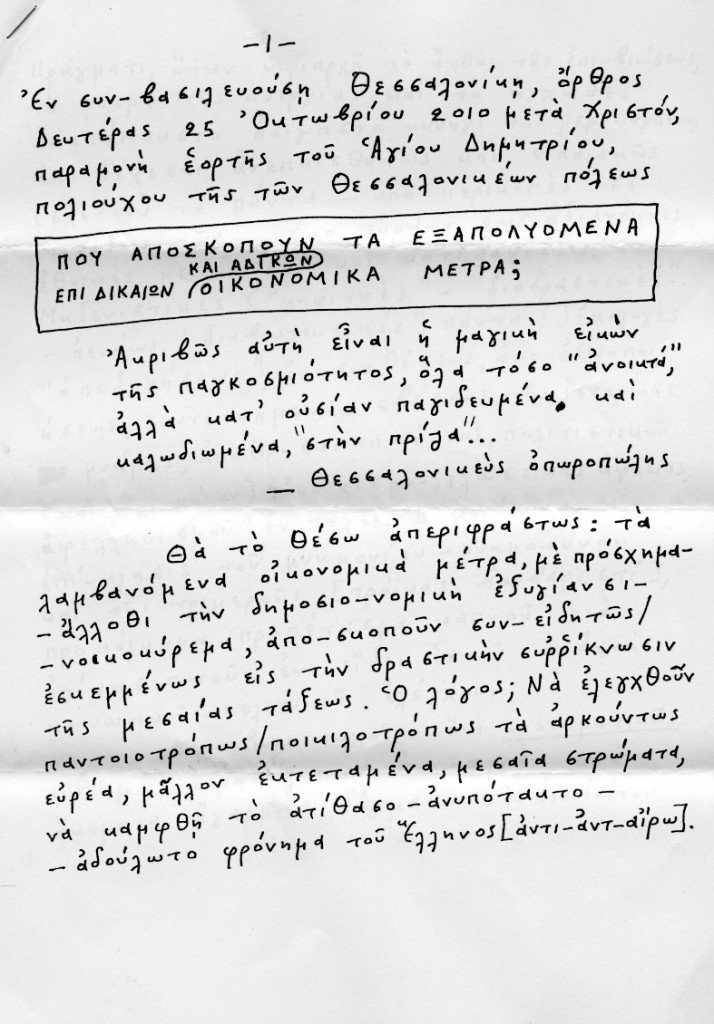 -1-
Ἐν συν-βασιλευούσῃ Θεσσαλονίκῃ, ὄρθρος
Δευτέρας 25 Ὀκτωβρίου 2010 μετὰ Χριστόν,
παραμονὴ ἑορτῆς τοῦ Ἁγίου Δημητρίου,
πολιούχου τῆς τῶν Θεσσαλονικέων πόλεως
ΠΟΥ ΑΠΟΣΚΟΠΟΥΝ ΤΑ ΕΞΑΠΟΛΥΟΜΕΝΑ
ΚΑΙ ΑΔΙΚΩΝ
ΕΠΙ ΔΙΚΑΙΩΝ ΟΙΚΟΝΟΜΙΚΑ ΜΕΤΡΑ;
Ἀκριβῶς αὐτὴ εἶναι ἡ μαγικὴ εἰκὼν
τῆς παγκοσμιότητος, ὅλα τόσο "ἀνοικτά,"
ἀλλὰ κατ' οὐσίαν παγιδευμένα. καὶ
καλωδιωμένα, "στὴν πρίζα"...
— Θεσσαλονικεὺς ὀπωροπώλης
Θὰ τὸ θέσω ἀπεριφράστως: τὰ
λαμβανόμενα οἰκονομικὰ μέτρα, μὲ πρόσχημα-
-ἄλλοθι τὴν δημοσιο-νομικὴ ἐξυγίανσι-
-νοικοκύρεμα, ἀπο-σκοποῦν συν-ειδητῶς/
ἐσκεμμένως εἰς τὴν δραστικὴν συῤῥίκνωσιν
τῆς μεσαίας τάξεως. Ὁ λόγος; Νὰ ἐλεγχθοῦν
παντοιοτρόπως/ποικιλοτρόπως τὰ ἀρκούντως
εὐρέα, μᾶλλον ἐκτεταμένα, μεσαῖα στρώματα,
νὰ καμφθῇ τὸ ἀτίθασο-ἀνυπότακτο-
-ἀδούλωτο φρόνημα τοῦ Ἕλληνος [ἀντι-ἀντ-αίρω].